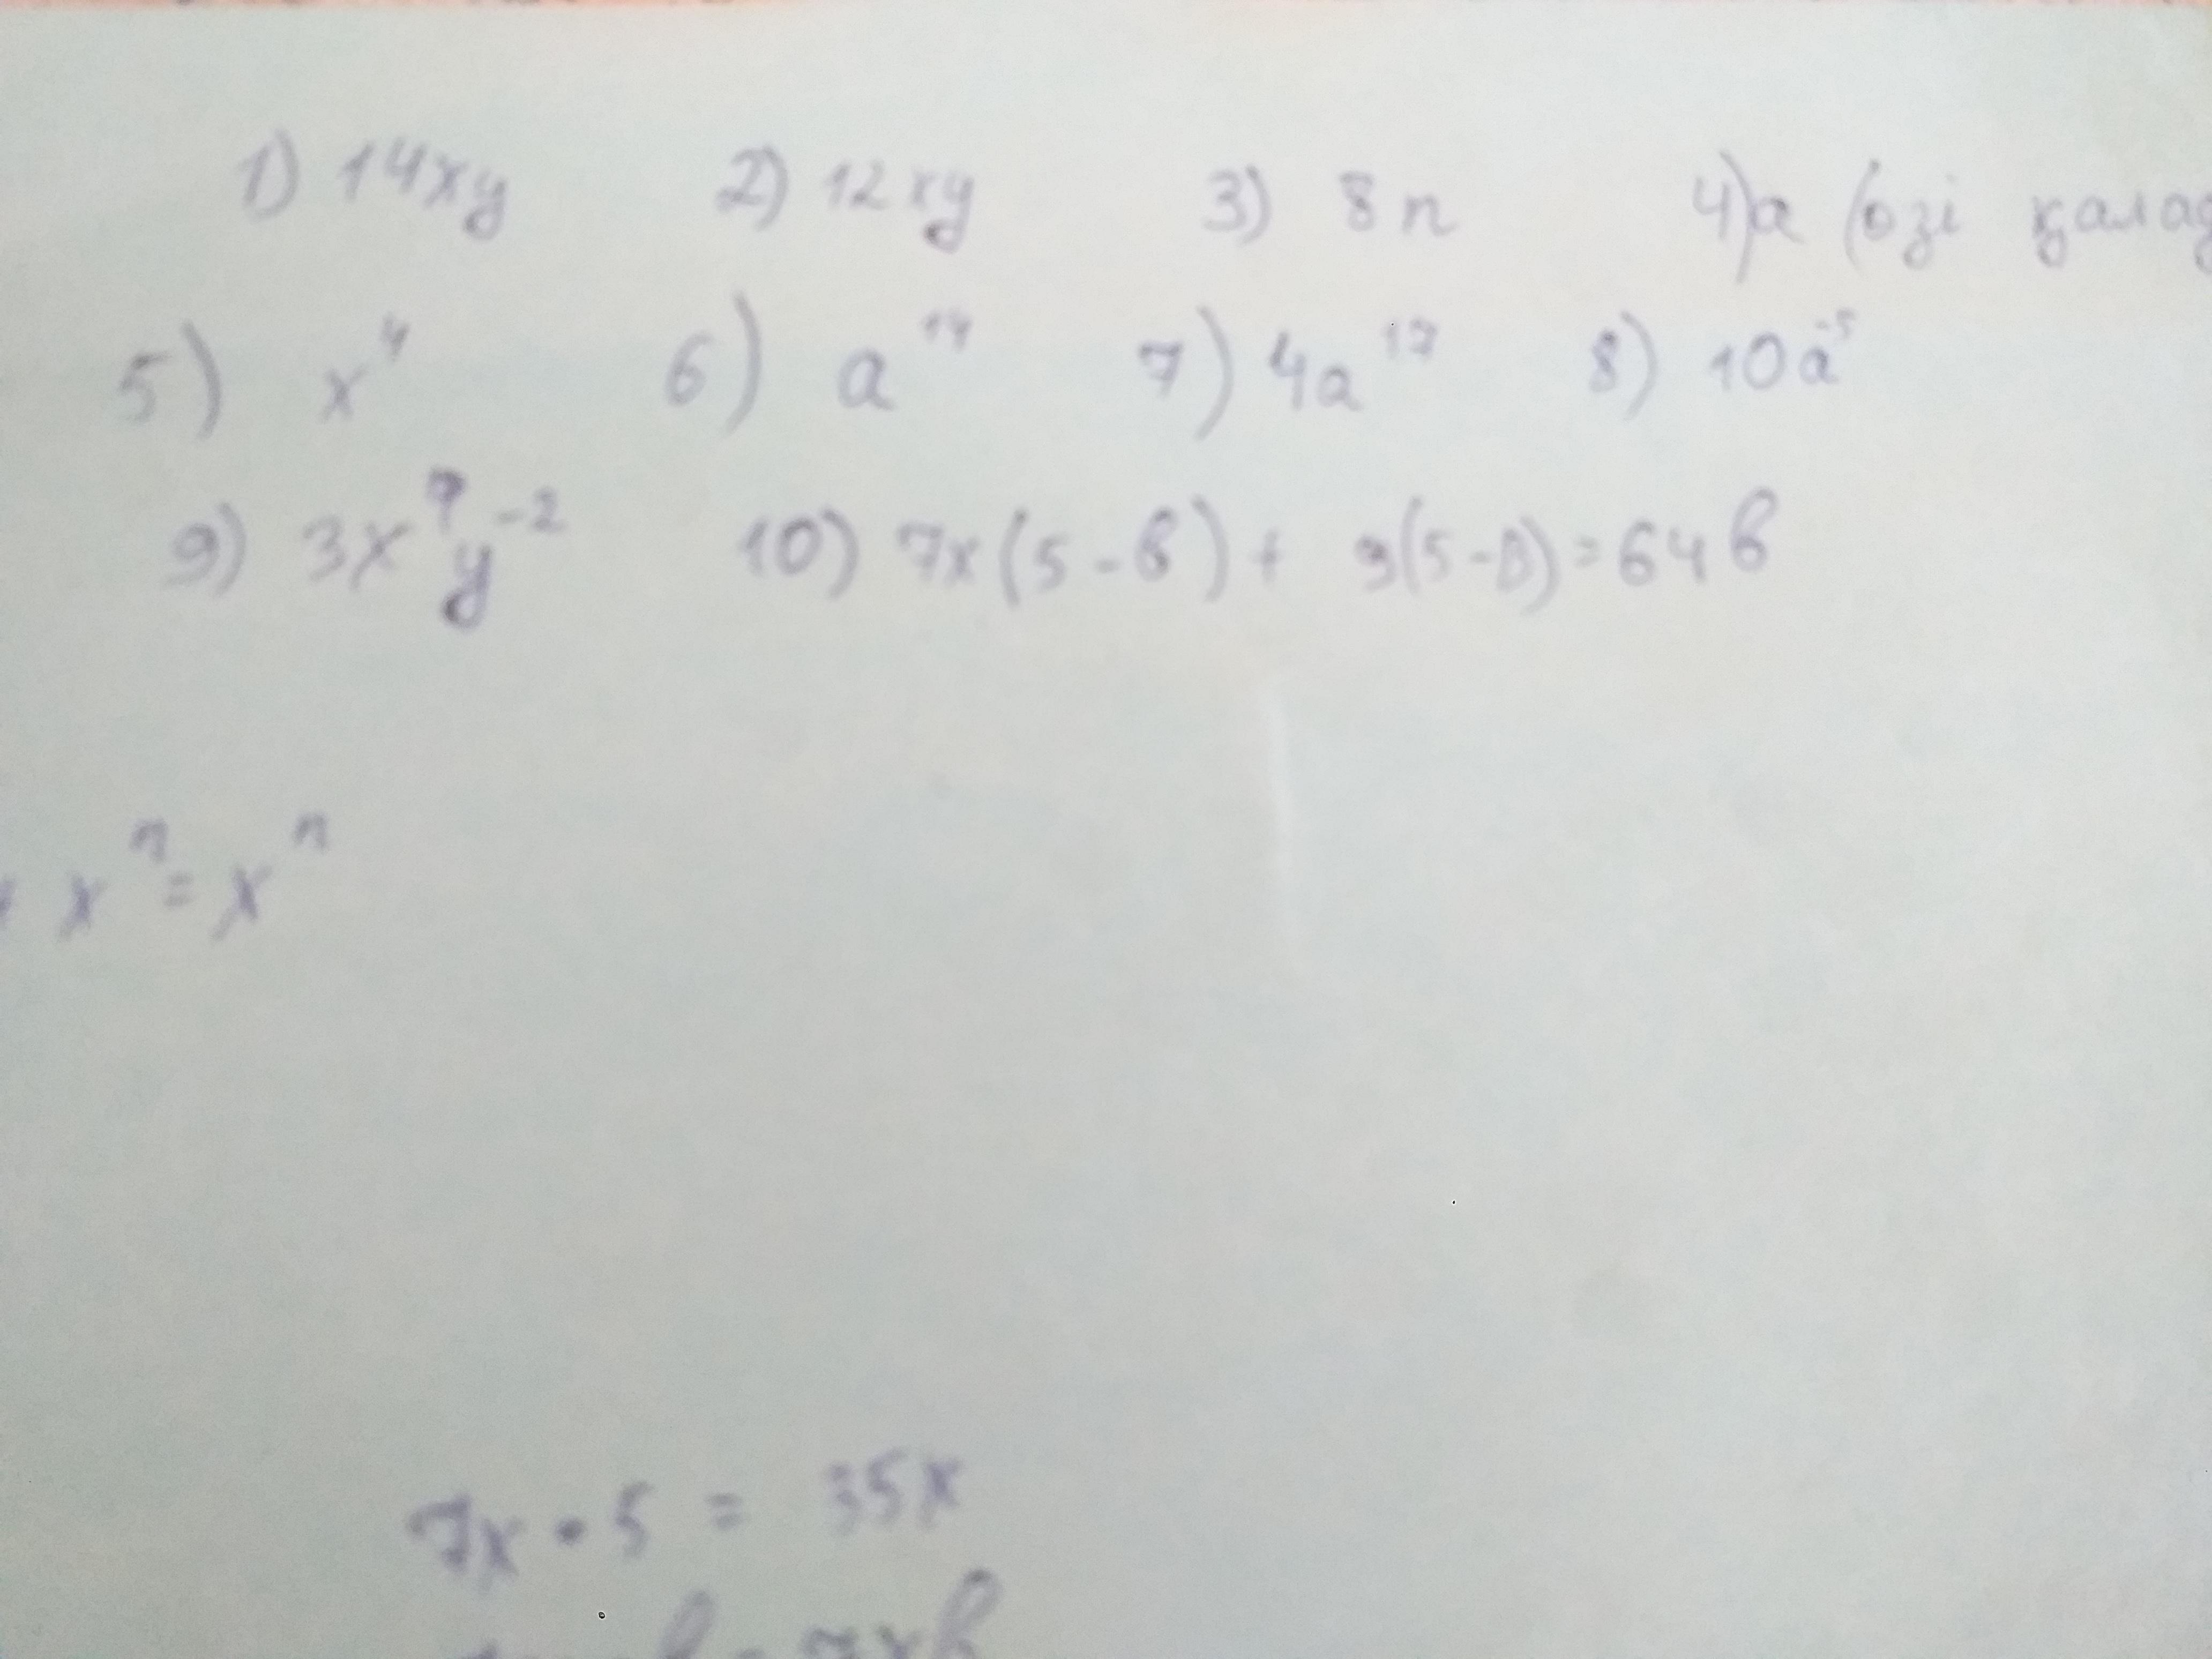 1) 14xy 2) 12xy 3) 8n 4) a (өзі
5) x⁴ 6) a¹⁴ 7) 4a¹⁷ 8) 10a⁻⁵
9) 3x⁷y⁻² 10) 7x(5-в)+ 3(5-в)=64в
xⁿ=xⁿ
7x•5 = 35x